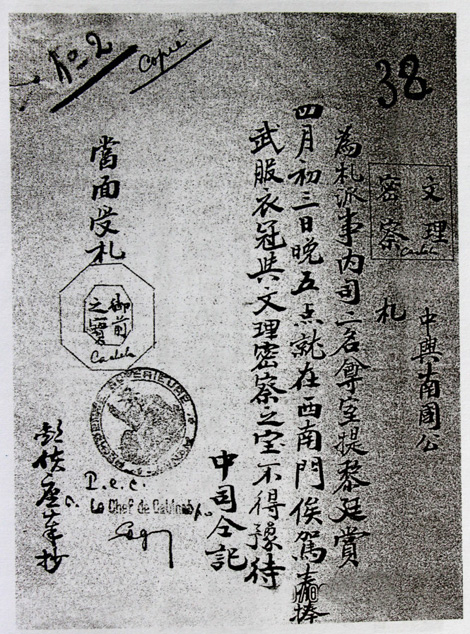 No 2
Copié
38
文理
密察
Cachet
中興南國公
札
為札派事內司一名尊室提黎廷賞
四月初三日晚五点就在西南門俟駕捧
武服衣冠與文理密察之宝不得豫待
中司仝記
當面受札
御前
之寶
Cachet
SUPÉRIEURE
P.c.c.
Le Chef de Cabinet
奉抄